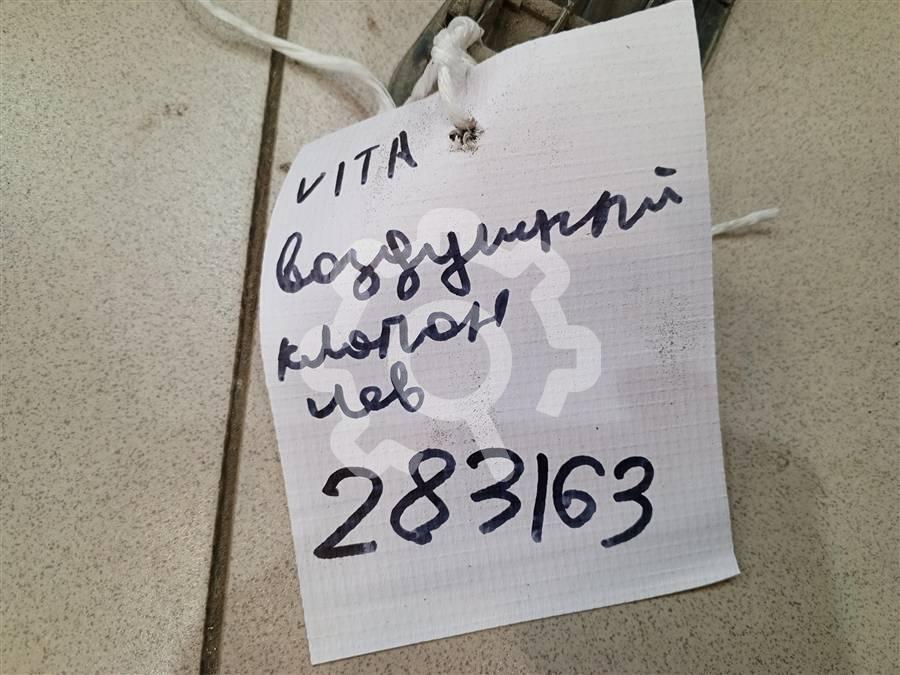 VITA
воздушный
клапан
лев
283163